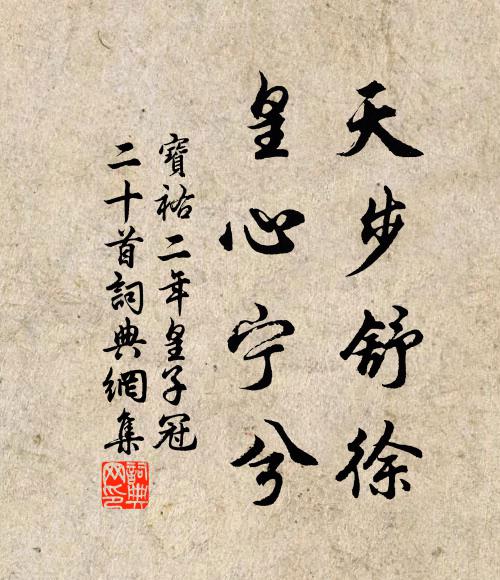 天步舒徐
皇心宁兮
寶祐二年皇子冠
二十首詞典網集
詞典
网印